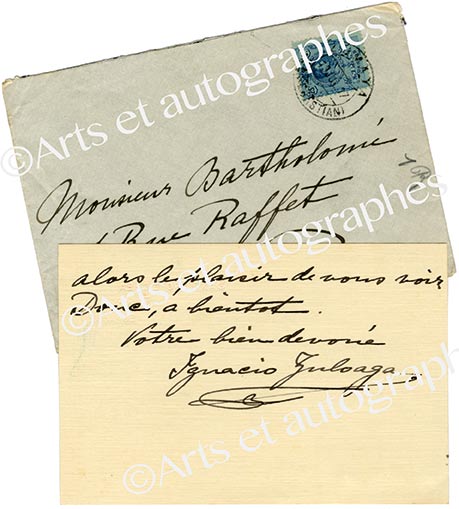 Monsieur Bartholomé
Rue Raffet
alors le plaisir de vous voir
Donc, a bientot.
Votre bien devoué
Ignacio Zuloaga
©Arts et autographes
©Arts et autographes
©Arts et autographes
©Arts et autographes